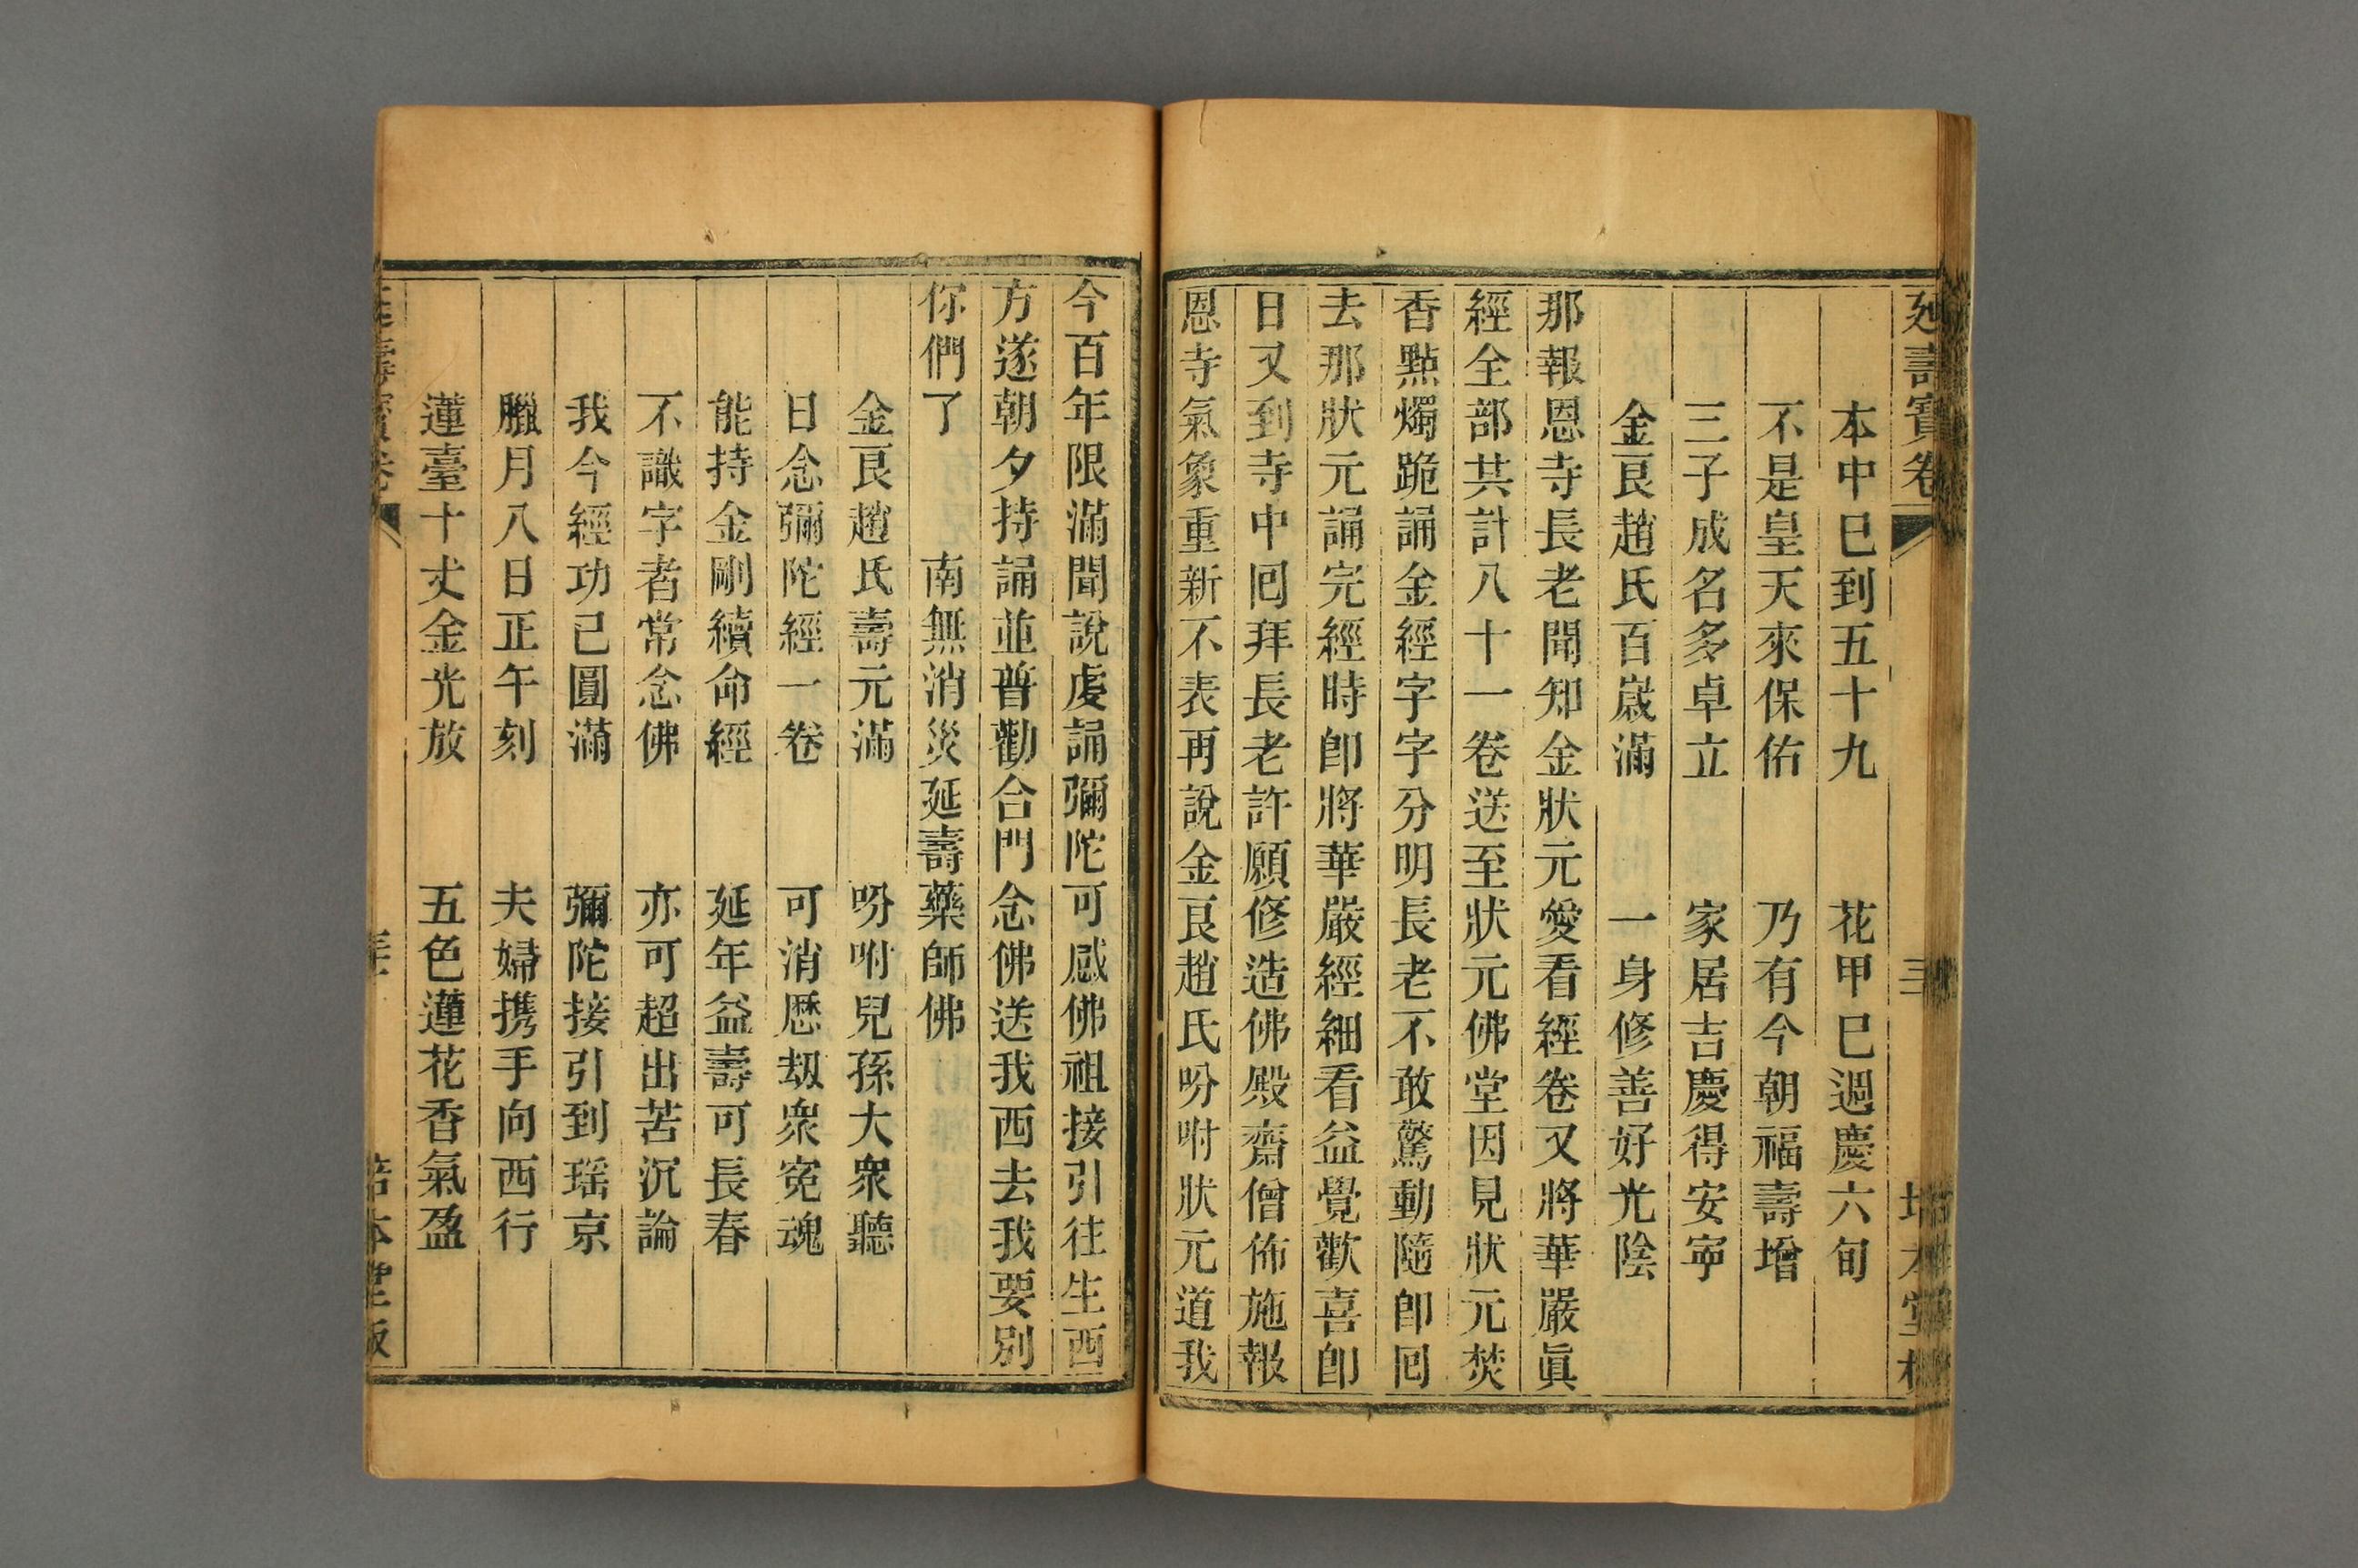 延壽寶卷
本中巳到五十九　花甲巳過慶六旬
不是皇天來保佑　乃有今朝福壽增
三子成名多卓立　家居吉慶得安寧
金艮趙氏百嵗滿　一身修善好光陰
那報恩寺長老聞知金狀元愛看經卷又將華嚴眞
經全部共計八十一卷送至狀元佛堂因見狀元焚
香㸃燭跪誦金經字字分明長老不敢驚動隨卽囘
去那狀元誦完經時卽將華嚴經細看益覺歡喜卽
日又到寺中囘拜長老許願修造佛殿齋僧佈施報
恩寺氣象重新不表再說金艮趙氏吩咐狀元道我
今百年限滿聞說虔誦彌陀可感佛祖接引往生西
方遂朝夕持誦並普勸合門念佛送我西去我要别
你們了　南無消災延壽藥師佛
金艮趙氏壽元滿　吩咐兒孫大衆聽
日念彌陀經一卷　可消歷刼衆寃魂
能持金剛續命經　延年益壽可長春
不識字者常念佛　亦可超出苦沉論
我今經功已圓滿　彌陀接引到瑶京
臘月八日正午刻　夫婦携手向西行
蓮臺十丈金光放　五色蓮花香氣盈
壽寶卷
本堂